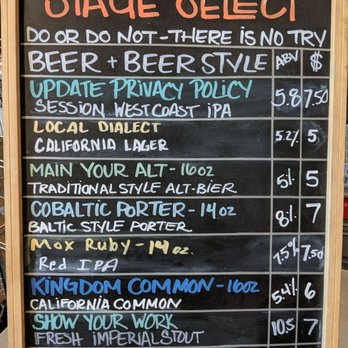 STAGE SELECT
DO OR DO NOT-THERE IS NO TRY
BEER + BEER STYLE ABV $
UPDATE PRIVACY POLICY 5.8 7.50
SESSION WEST COAST IPA
LOCAL DIALECT 5.2% 5
CALIFORNIA LAGER
MAIN YOUR ALT-16oz 5% 5
TRADITIONAL STYLE ALT-BIER
COBALTIC PORTER-14oz 8% 7
BALTIC STYLE PORTER
MOX RUBY-14oz. 7.5% 7.50
Red IPA
KINGDOM COMMON-16oz 5.4% 6
CALIFORNIA COMMON
SHOW YOUR WORK 10.5 7
FRESH IMPERIAL STOUT